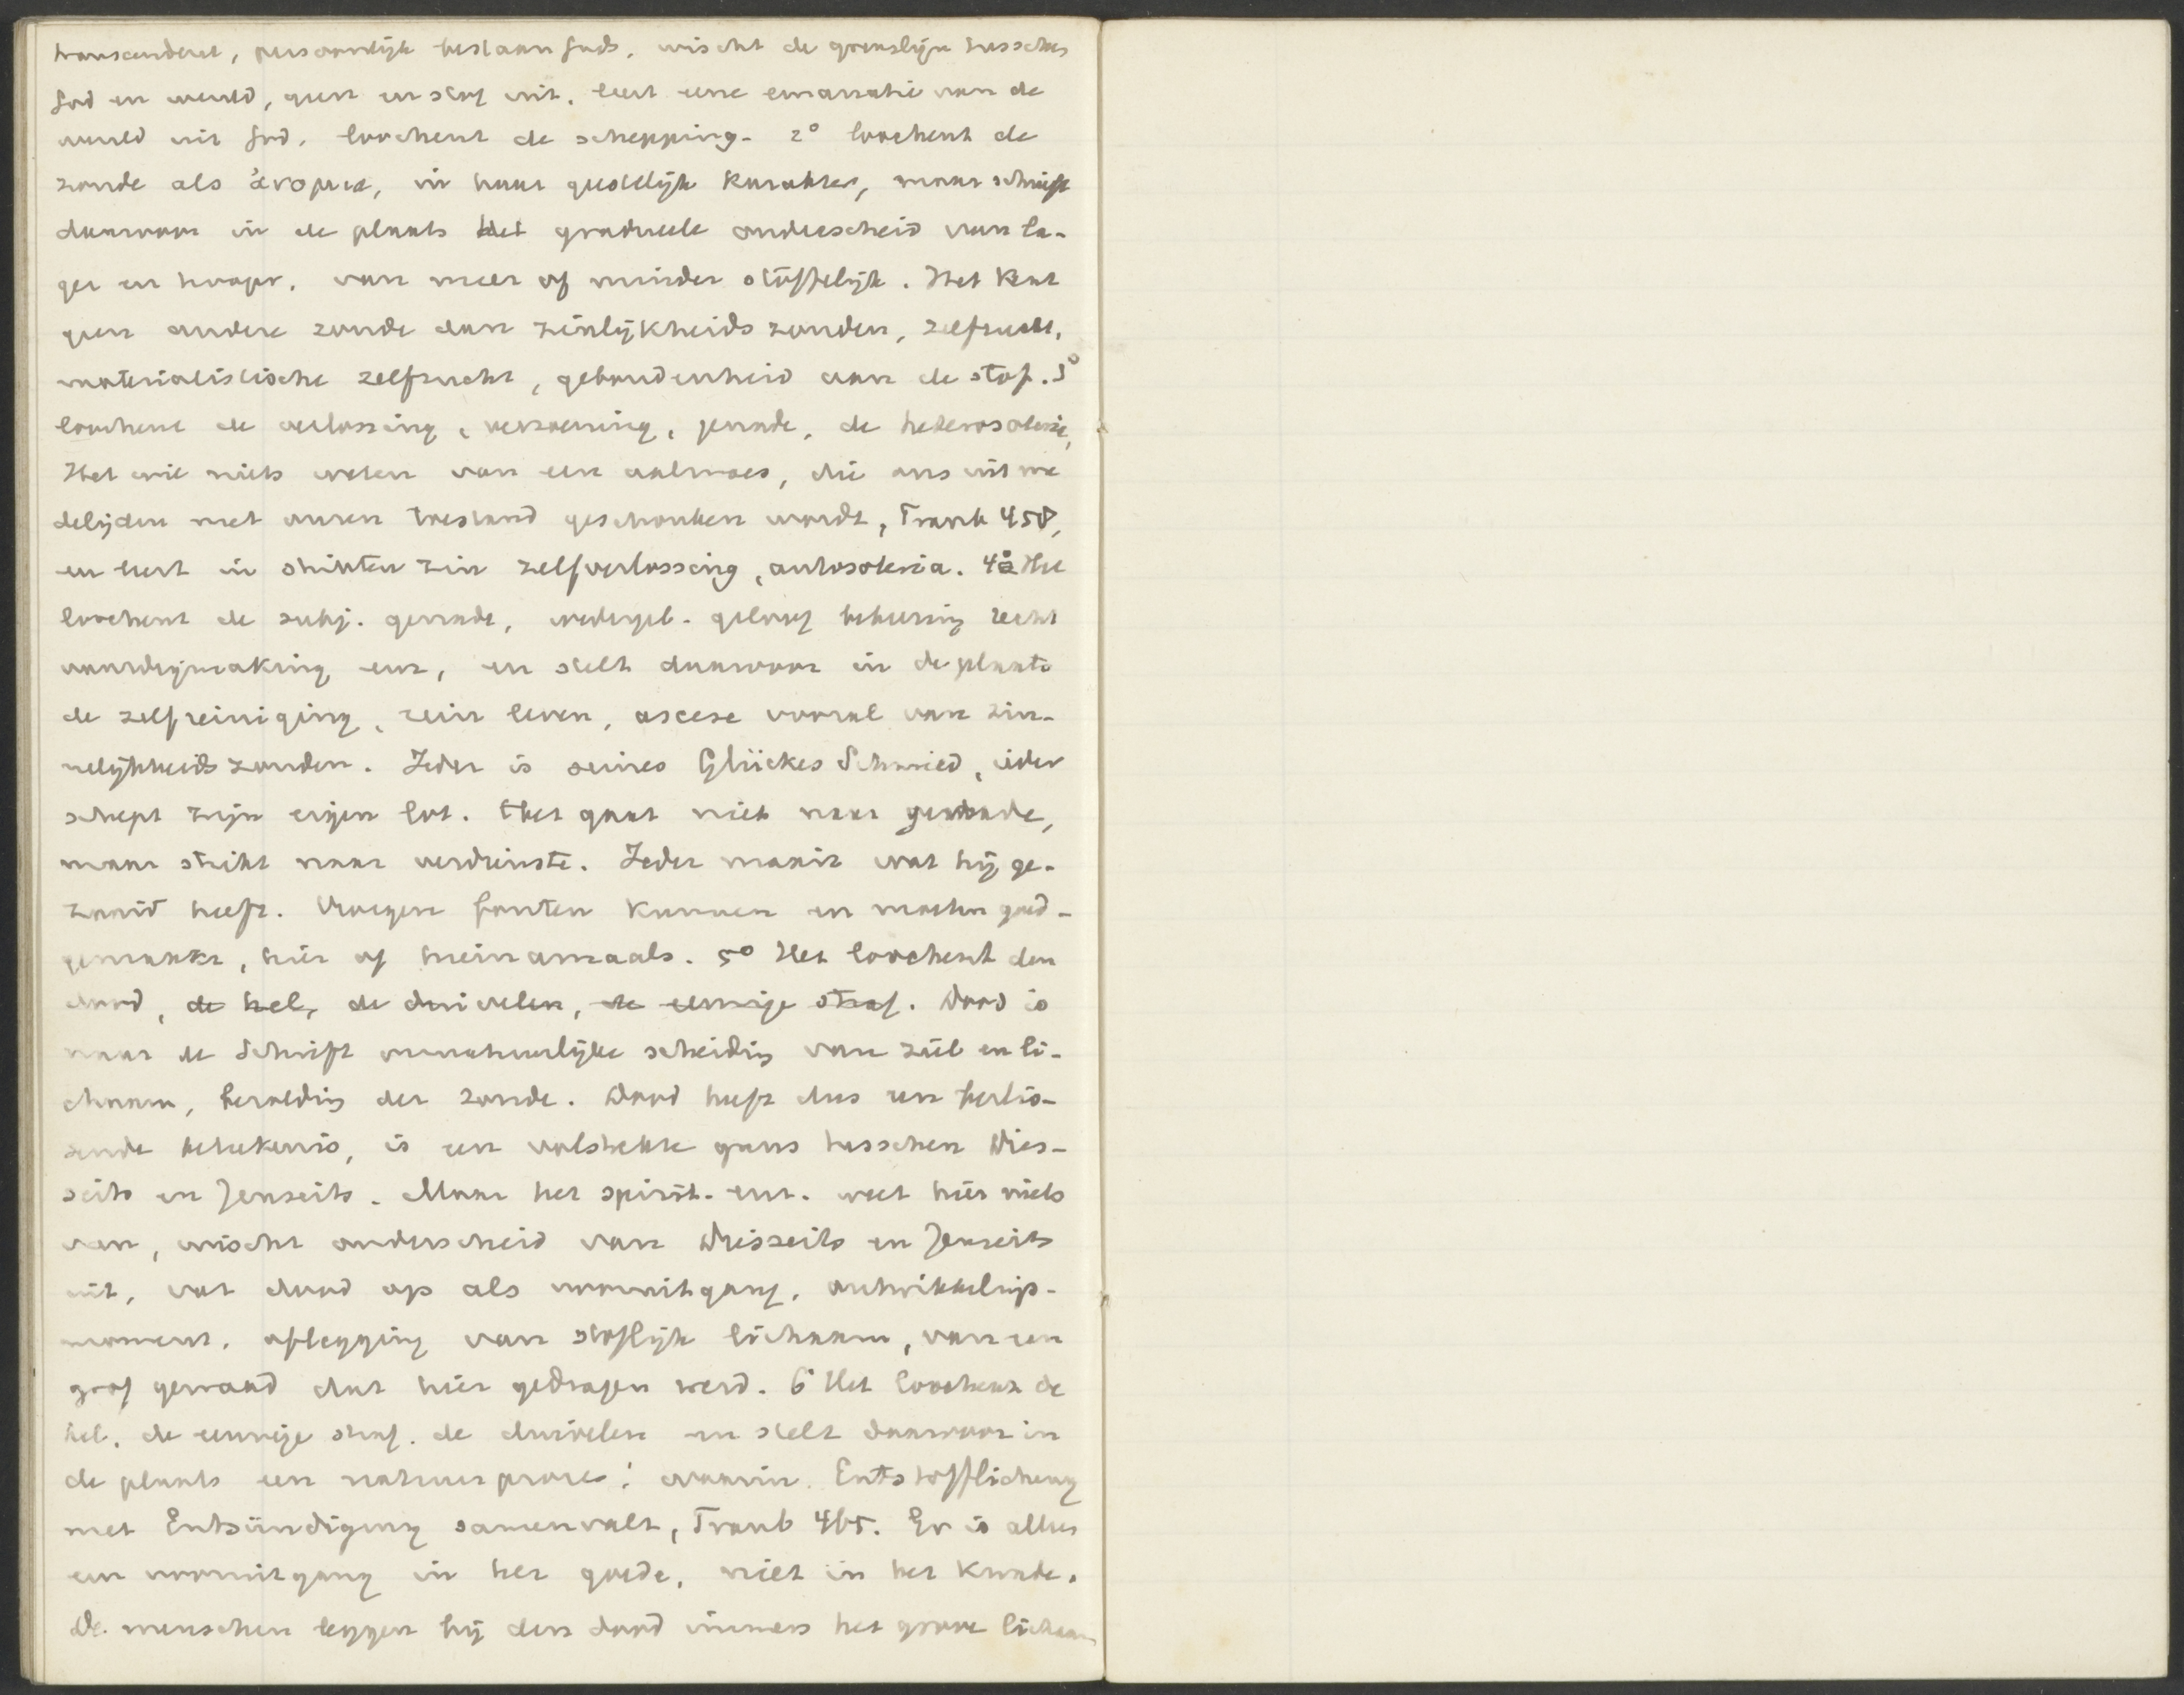 transcendent, persoonlijk bestaan Gods, wischt de grenslijn tusschen
God en wereld, geest en stof uit, leert eene emanatie van de
wereld uit God, loochent de schepping. 2° loochent de
zonde als ἀνομια, in haar geestelijk karakter, maar schuift
daarvoor in de plaats het gradueele onderscheid van la-
ger en hooger, van meer of minder stoffelijk. Het kent
geen andere zonde dan zinlijkheids zonden, zelfzucht,
materialistische zelfzucht, gebondenheid aan de stof. 3°
loochent de verlossing, verzoening, genade, de heterosoterie,
Het wil niets weten van een aalmoes, die ons uit me
delijden met onzen toestand geschonken wordt, Traub 458,
en leert in strikten zin zelfverlossing, autosoteria. 4° Het
loochent de subj. genade, wedergeb. geloof bekeering recht
vaardigmaking enz, en stelt daarvoor in de plaats
de zelfreiniging, rein leven, ascese vooral van zin-
nelijkheids zonden. Jeder is seines Glückes Schmied, ieder
schept zijn eigen lot. Het gaat niet naar genade,
maar strikt naar verdienste. Ieder maait wat hij ge-
zaaid heeft. Vroegere fouten kunnen en moeten goed-
gemaakt, hier of hiernamaals. 5° Het loochent den
dood, de hel, de duivelen, de eeuwige straf. Dood is
naar de Schrift onnatuurlijke scheiding van ziel en li-
chaam, bezoldiging der zonde. Dood heeft dus een beslis-
sende beteekenis, is een volstrekte grens tusschen Dies-
seits en Jenseits. Maar het spirit. enz. weet hier niets
van, wischt onderscheid van Diesseits en Jenseits
uit, vat dood op als vooruitgang, ontwikkelings-
moment, aflegging van stoflijk lichaam, van een
grof gewaad dat hier gedragen werd. 6° Het loochent de
hel, de eeuwige straf, de duivelen en stelt daarvoor in
de plaats een natuurproces, waarin Entstofflichung
met Entsündigung samenvalt, Traub 465. Er is alleen
een vooruitgang in het goede, niet in het kwade.
De menschen leggen bij den dood immers het grove lichaam